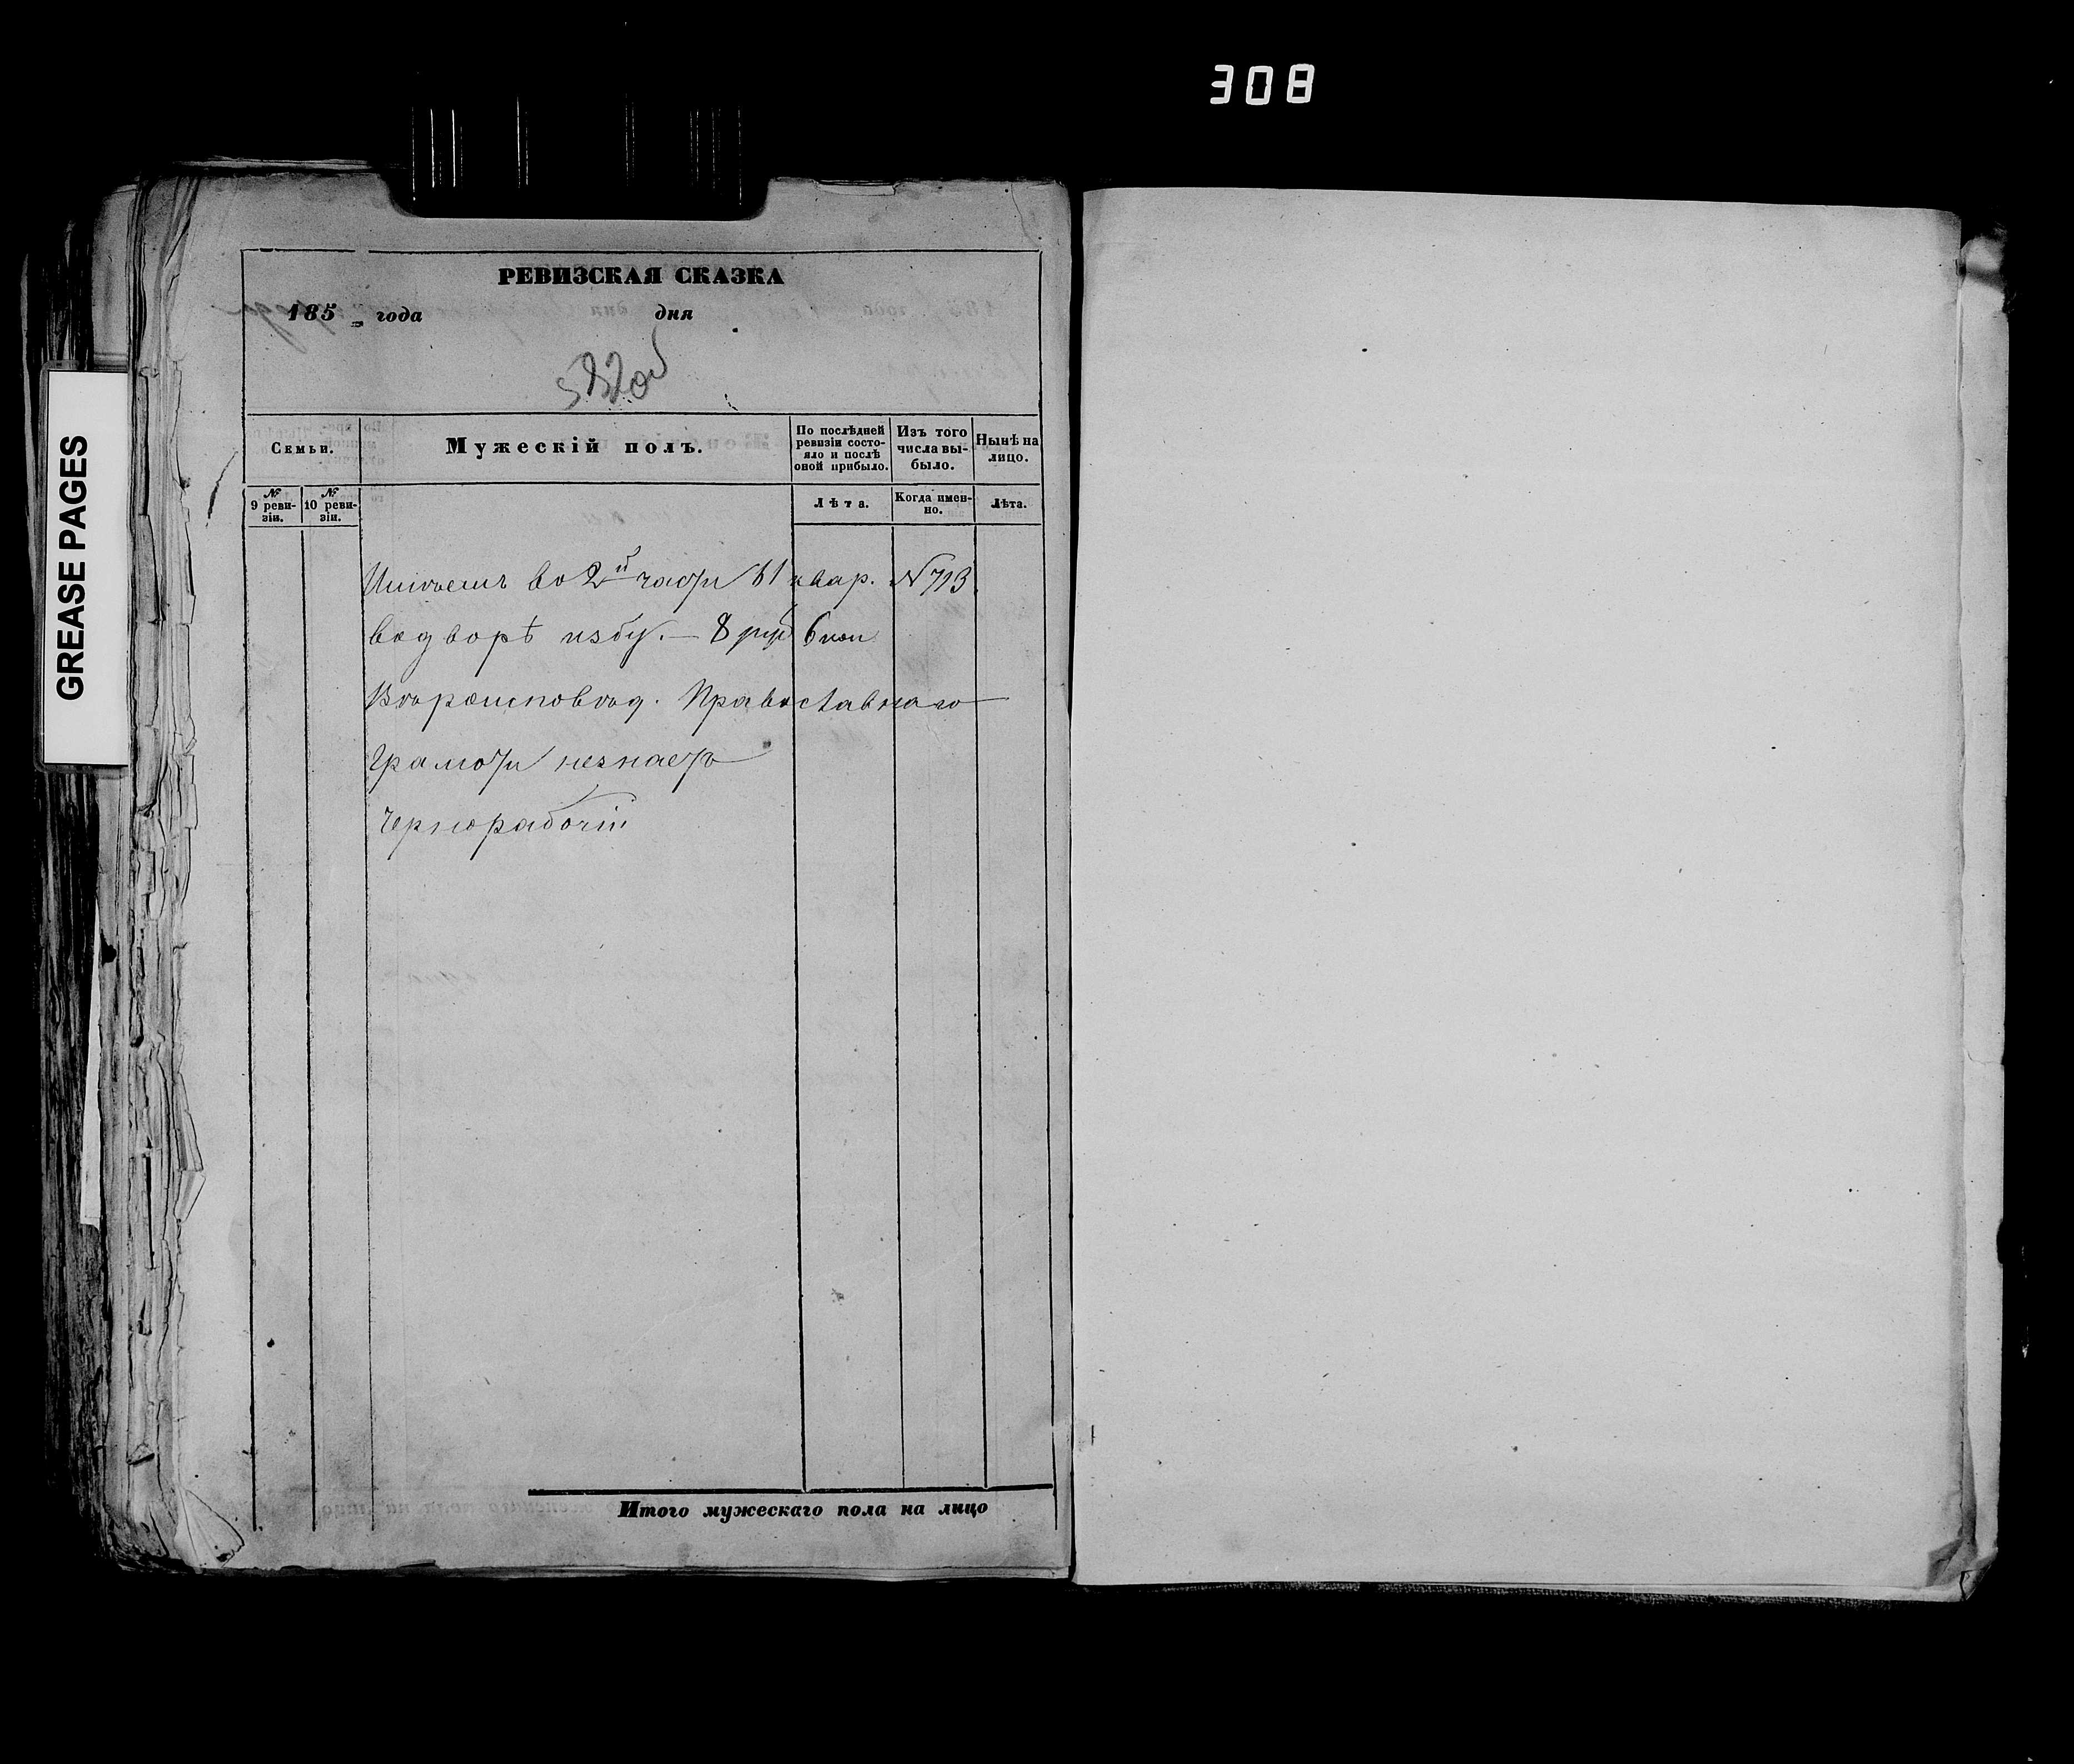 308
GREASE PAGES
РЕВИЗСКАЯ СКАЗКА
185 года дня
Семьи.
Мужескій полъ.
По послѣдней ревизіи состо-
яло и послѣ
оной прибыло.
Изъ того
числа вы-
было.
Нынѣ на
лицо.
№
9 реви-
зіи.
№
10 реви-
зіи.
Лѣта.
Когда имен-
но.
Лѣта.
во 2й части 61 квар. N 713
водворѣ избу. — 8 руб 6 коп
Вѣроисповѣд. Православнаго
Грамоти незнаетъ
Чернорабочій
Итого мужескаго пола на лицо